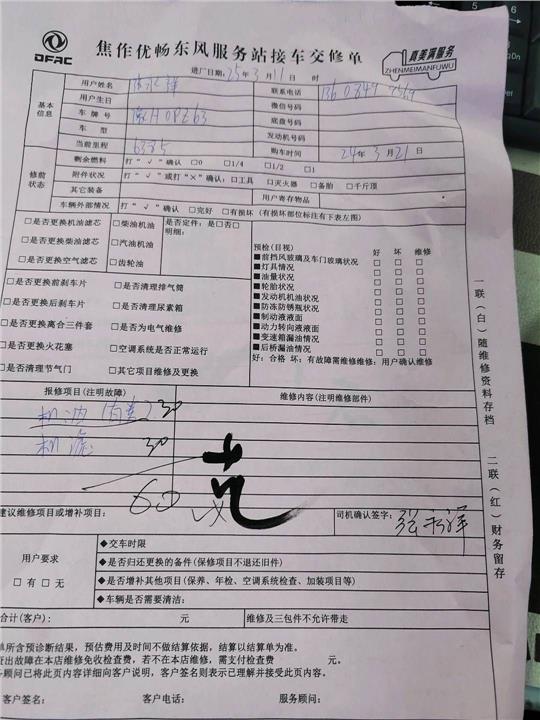 DFAC
焦作优畅东风服务站接车交修单
真美满服务
ZHENMEIMANFUWU
进厂日期: 25年3月11日 时
基本信息
用户姓名 联系电话
用户生日 微信号码
车牌号 豫H0PZ63 底盘号
车型 发动机号码
当前里程 6385 购车时间 24年3月21日
修前状态
剩余燃料 打“√”确认 □0 □1/4 □1/2 □1
附件状况 打“√”或打“×”确认: □工具 □灭火器 □备胎 □千斤顶
其它装备 用户寄存物品
车辆外部情况 打“√”确认 □完好 □有损坏 (有损坏部位标注有下表左图)
□是否更换机油滤芯 □柴油机油 是否定件: 是□否□
□是否更换柴油滤芯 □汽油机油 明细:
□是否更换空气滤芯 □齿轮油
□是否更换前刹车片 □是否清理排气筒
□是否更换后刹车片 □是否清理尿素箱
□是否更换离合三件套 □是否为电气维修
□是否更换火花塞 □空调系统是否正常运行
□是否清理节气门 □其它项目维修及更换
预检(目视) 好 坏 维修
■前挡风玻璃及车门玻璃状况 □ □ □
■灯具情况 □ □ □
■油量状况 □ □ □
■轮胎状况 □ □ □
■发动机机油状况 □ □ □
■防冻防锈瓶状况 □ □ □
■制动液液面 □ □ □
■动力转向液液面 □ □ □
■变速箱漏油情况 □ □ □
■后桥漏油情况 □ □ □
好: 合格 坏: 有故障需维修维修: 用户确认维修
报修项目(注明故障) 维修内容(注明维修部件)
机油 30
机滤 30
60
建议维修项目或增补项目: 司机确认签字:
用户要求
□有 □无
◆交车时限
◆是否归还更换的备件(保修项目不退还旧件)
◆是否增补其他项目(保养、年检、空调系统检查、加装项目等)
◆车辆是否需要清洁:
合计(客户): 元 维修及三包件不允许带走
单所含预诊断结果，预估费用及时间不做结算依据，结算以结算单为准。
查出故障在本店维修免收检查费，若不在本店维修，需支付检查费 元。
务顾问已将此页内容详细向客户说明，客户签名则表示已理解并接受此页内容。
客户签名: 客户电话: 服务顾问:
一联(白)随维修资料存档
二联(红)财务留存